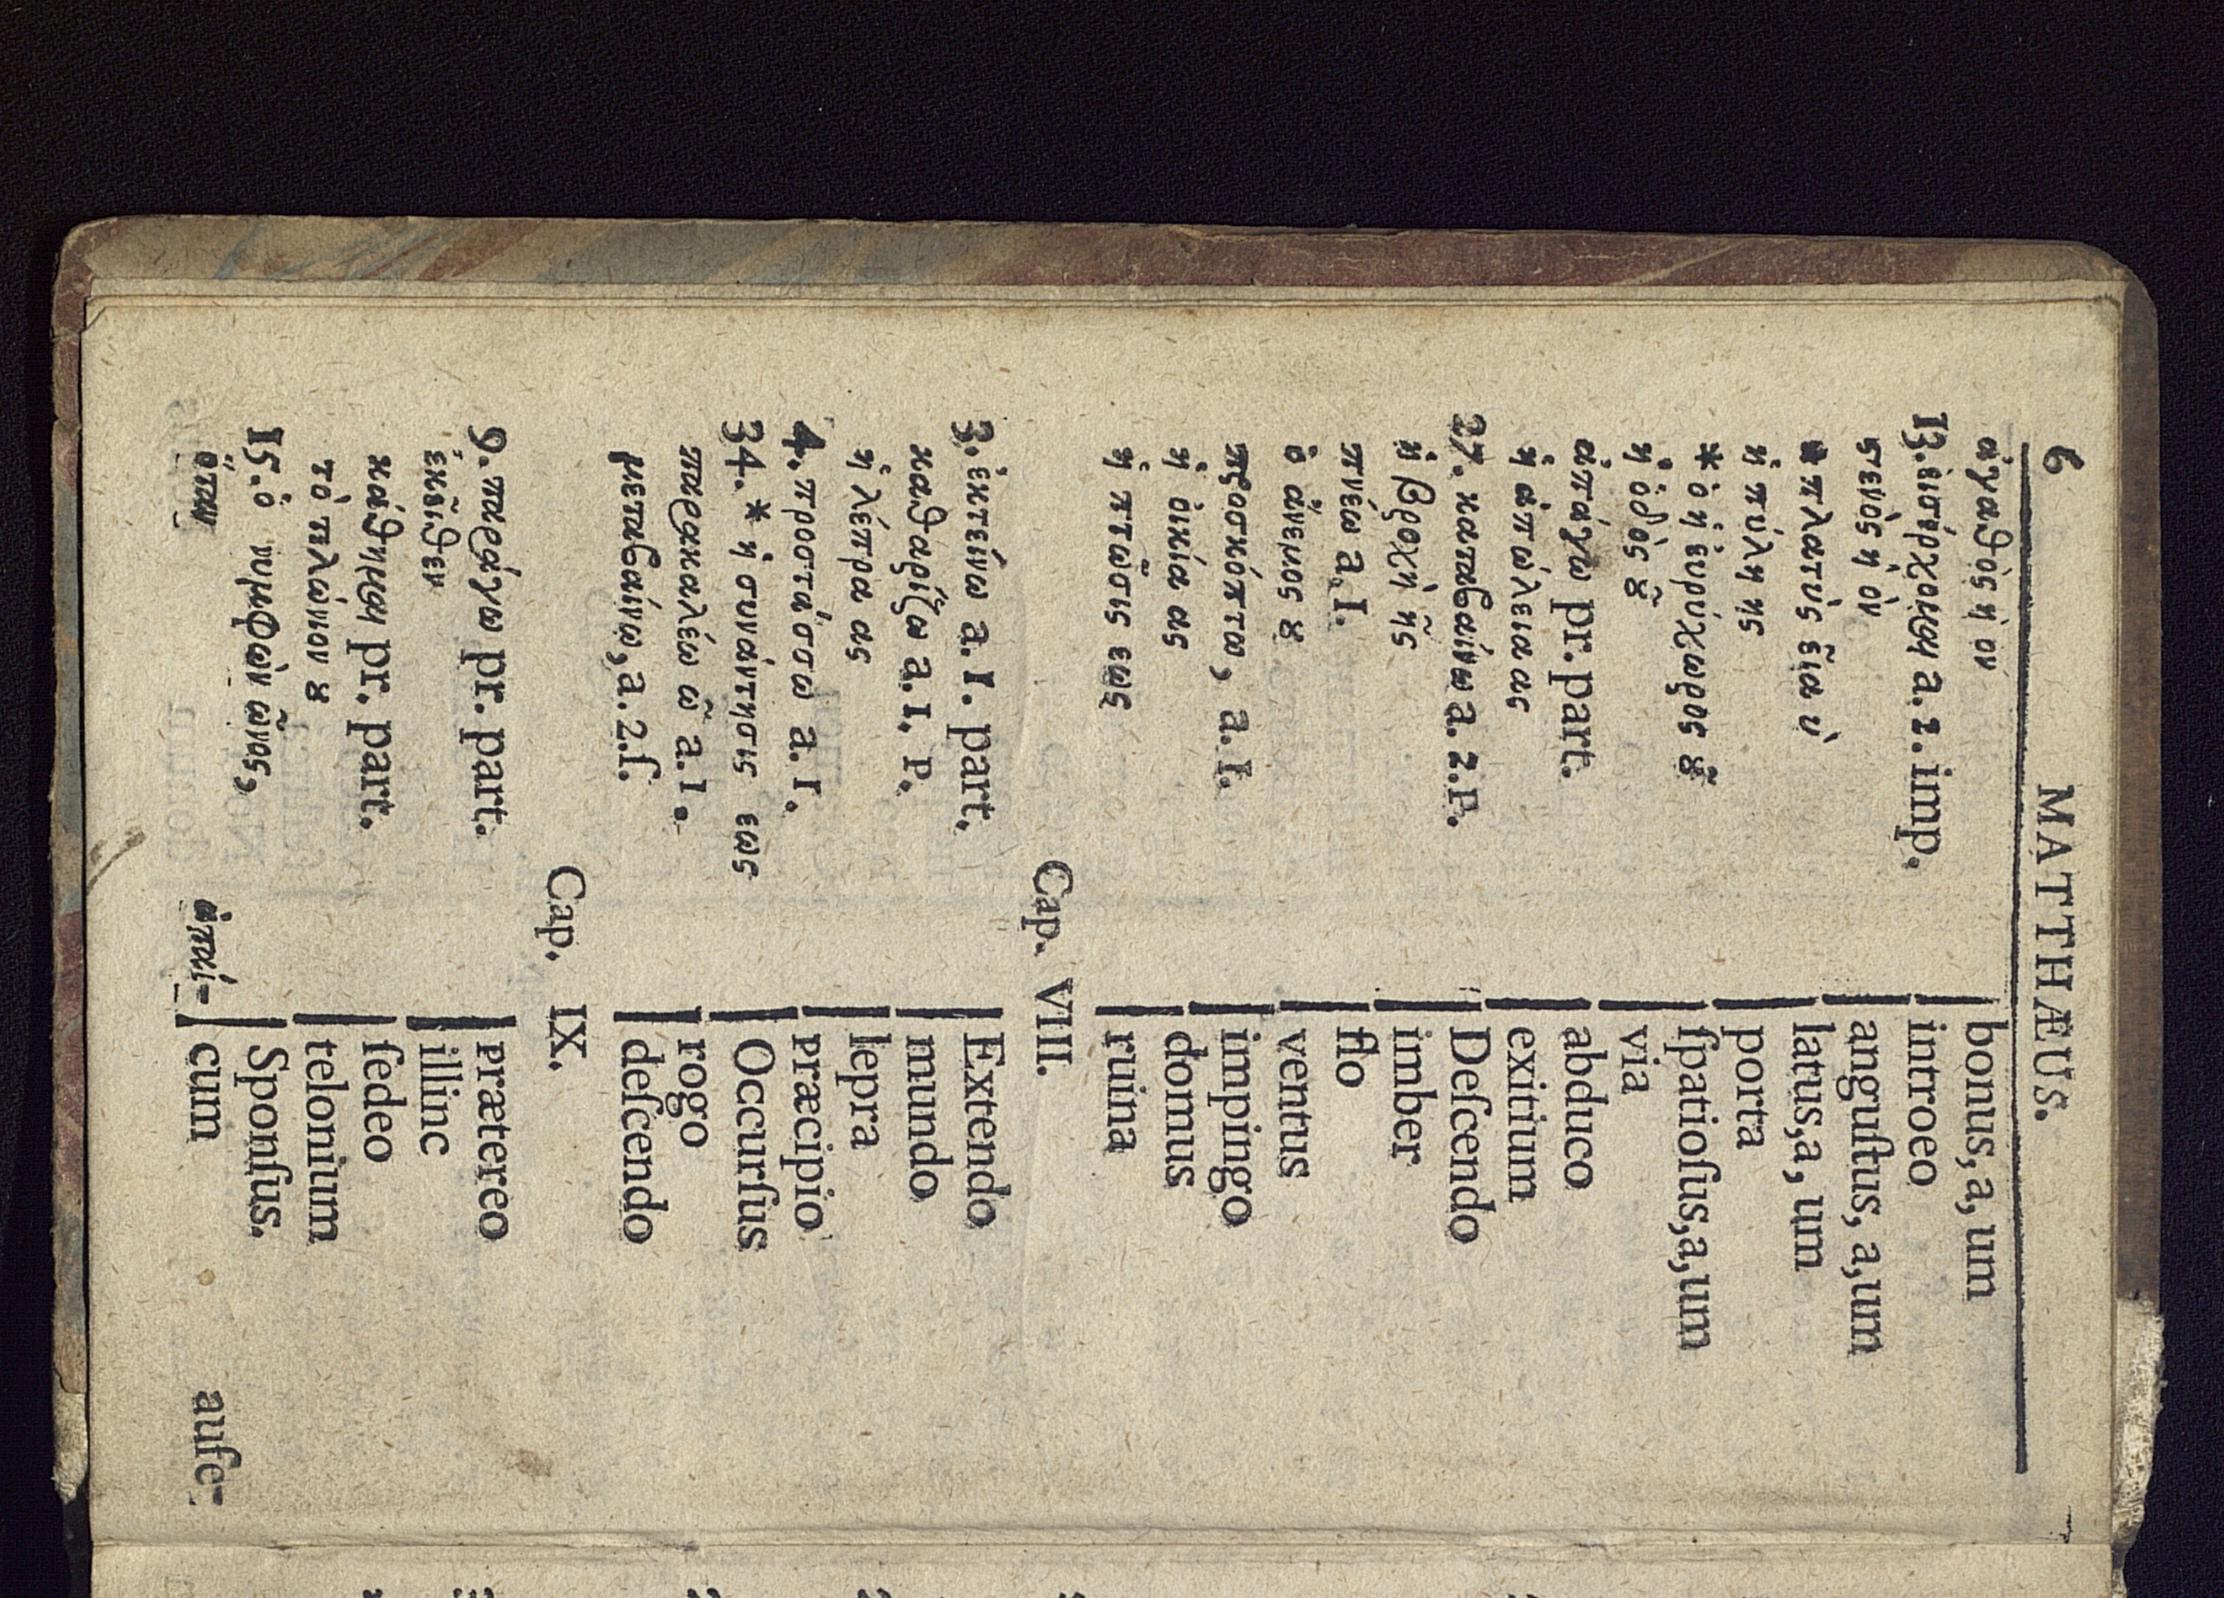 6 MATTHÆUS.
ἀγαθὸς ὴ ον | bonus, a, um
13. ἐισέρχομαι a. 2. imp. | introeo
στενὸς ὴ ὸν | anguſtus, a, um
* πλατὺς εῖα ὺ | latus, a, um
ἡ πύλη ης | porta
* ὁ ἡ ἐυρύχωρος ȣ | ſpatioſus, a, um
ἡ ὁδὸς ȣ͂ | via
ἀπάγω pr. part. | abduco
ἡ ἀπώλεια ας | exitium
27. καταβαίνω a. 2. P. | Deſcendo
ἡ βροχὴ ῆς | imber
πνέω a, I. | flo
ὁ ἄνεμος ȣ | ventus
προσκόπτω, a. I. | impingo
ἡ ὀικία ας | domus
ἡ πτῶσις εως | ruina
Cap. VIII.
3. ἐκτείνω a. I. part. | Extendo
καθαρίζω a. I. P. | mundo
ἡ λέπρα ας | lepra
4. προστάσσω a. I. | præcipio
34. * ἡ συνάντησις εως | Occurſus
παρακαλέω ῶ a. I. | rogo
μεταβαίνω, a. 2. ſ. | deſcendo
Cap. IX.
9. παράγω pr. part. | prætereo
ἐκεῖθεν | illinc
κάθημαι pr. part. | ſedeo
τὸ τελώνιον ȣ | telonium
15. ὁ νυμφὼν ῶνος, | Sponſus.
ὅταν | cum
ἀπαί- auſe-